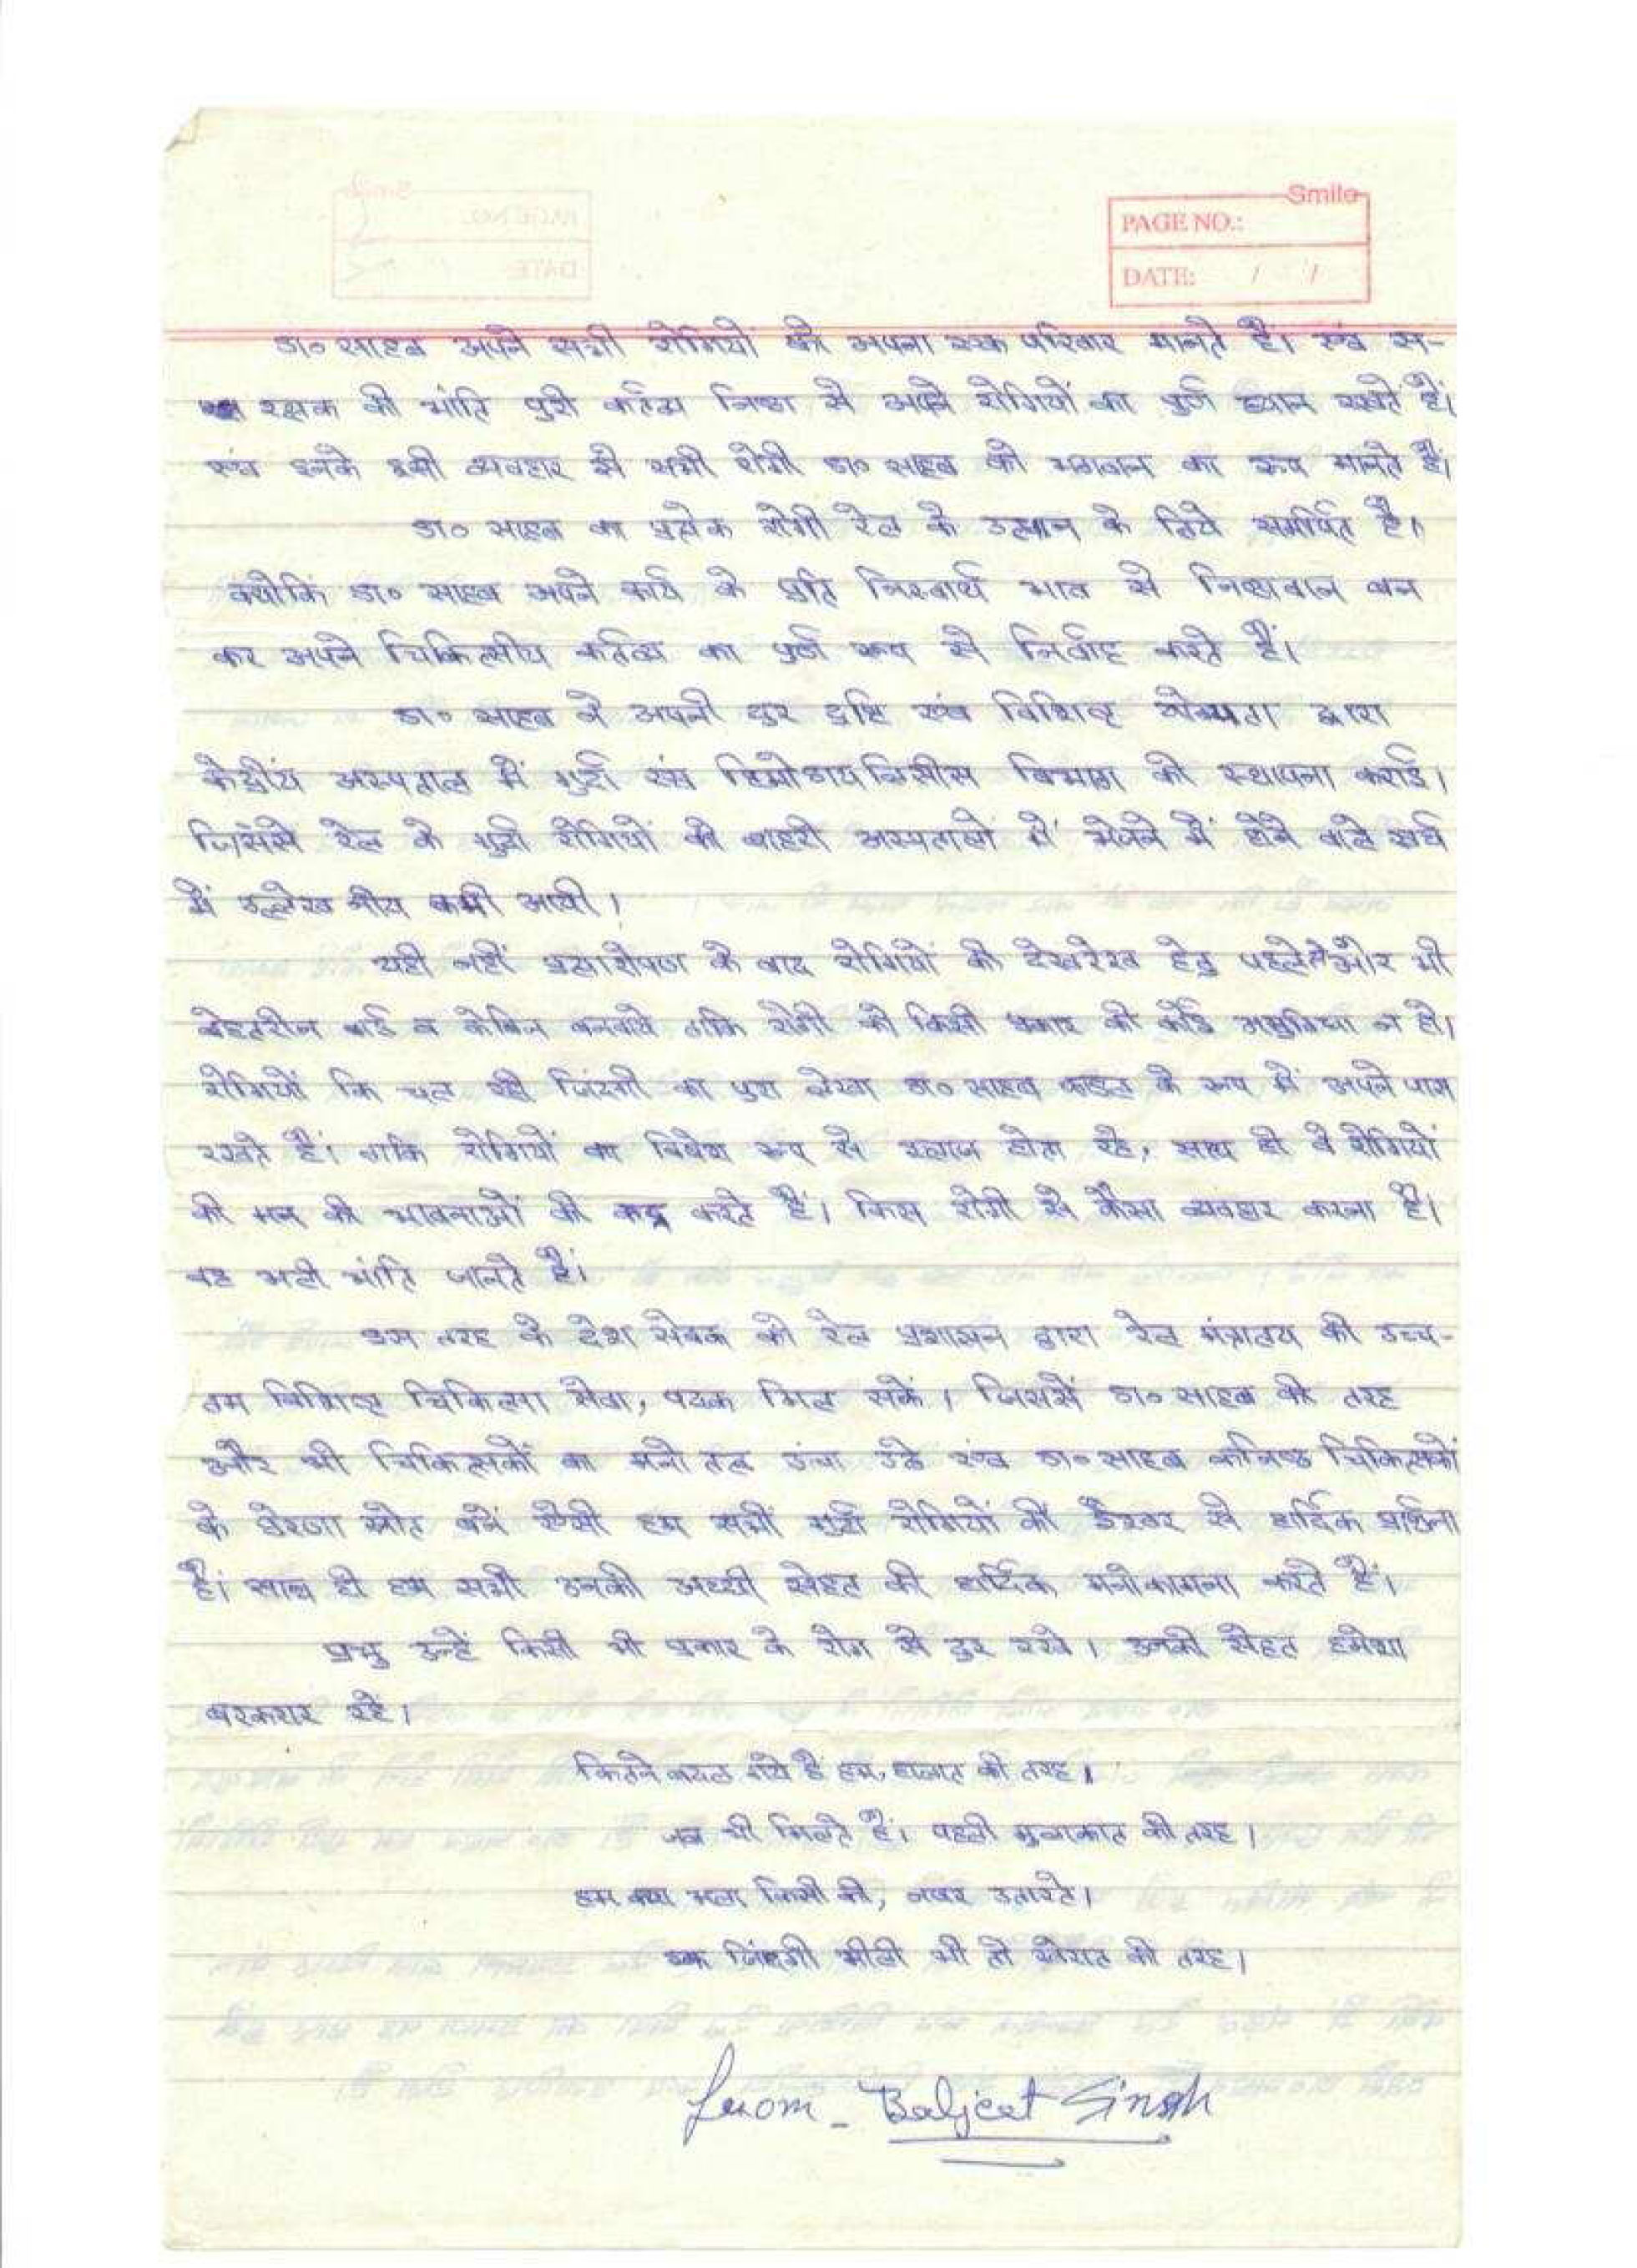 Smile
PAGE NO.:
DATE: / /
डा० साहब अपने सभी रोगियों को अपना एक परिवार मानते है। एंव स-
रक्षक की भांति पुरी कर्तव्य निष्ठा से अपने रोगियों का पुर्ण ध्यान रखते हैं।
एंव इनके इसी व्यवहार से सभी रोगी डा० साहब को भगवान का रूप मानते हैं।
डा० साहब का प्रत्येक रोगी रेल के उत्थान के लिये समर्पित है।
क्योकि डा० साहब अपने कार्य के प्रति निस्वार्थ भाव से निष्ठावान बन
कर अपने चिकित्सीय कर्तव्य का पुर्ण रूप से निर्वाह करते हैं।
डा० साहब ने अपनी दुर दृष्टि एंव विशिष्ट योग्यता द्वारा
केद्रींय अस्पताल में गुर्दा एंव हिमोडायलिसीस विभाग की स्थापना कराई।
जिसंसे रेल के गुर्दा रोगियों को बाहरी अस्पतालों में भेजने में होने वाले खर्च
में उल्लेखनीय कमी आयी।
यही नहीं प्रत्यारोपण के बाद रोगियों की देखरेख हेतु पहले से और भी
बेहतरीन वार्ड व केबिन बनवाये ताकि रोगी को किसी प्रकार की कोई असुविधा न हो।
रोगियों कि चल रही जिंदगी का पुरा लेखा डा० साहब फाइल के रूप में अपने पास
रखते हैं। ताकि रोगियों का विषेश रूप से इलाज होता रहे, साथ ही वे रोगियों
की मन की भावनाओं की कद्र करते हैं। किस रोगी से कैसा व्यवहार करना है।
वह भली भांति जानते हैं।
इस तरह के देश सेवक को रेल प्रशासन द्वारा रेल मंत्रालय की उच्च-
तम विशिष्ट चिकित्सा सेवा, पदक मिल सकें। जिससें डा० साहब की तरह
और भी चिकित्सकों का मनो तल उंचा उठे एंव डा० साहब कनिष्ठ चिकित्सकों
के प्रेरणा स्रोत बनें ऐसी हम सभीं गुर्दा रोगियों की ईश्वर से हार्दिक प्रार्थना
है। साथ ही हम सभी उनकी अच्छी सेहत की हार्दिक मनोकामना करते हैं।
प्रभु उन्हें किसी भी प्रकार के रोग से दुर रखे। उनकी सेहत हमेशा
बरकरार रहे।
कितने बदल गये है हम, हालात की तरह।
जब भी मिलते हैं। पहली मुलाकात की तरह।
हम क्या भला किसी की, नजर उतारते।
एक जिंदगी मीली भी तो खैरात की तरह।
from - Baljeet Singh